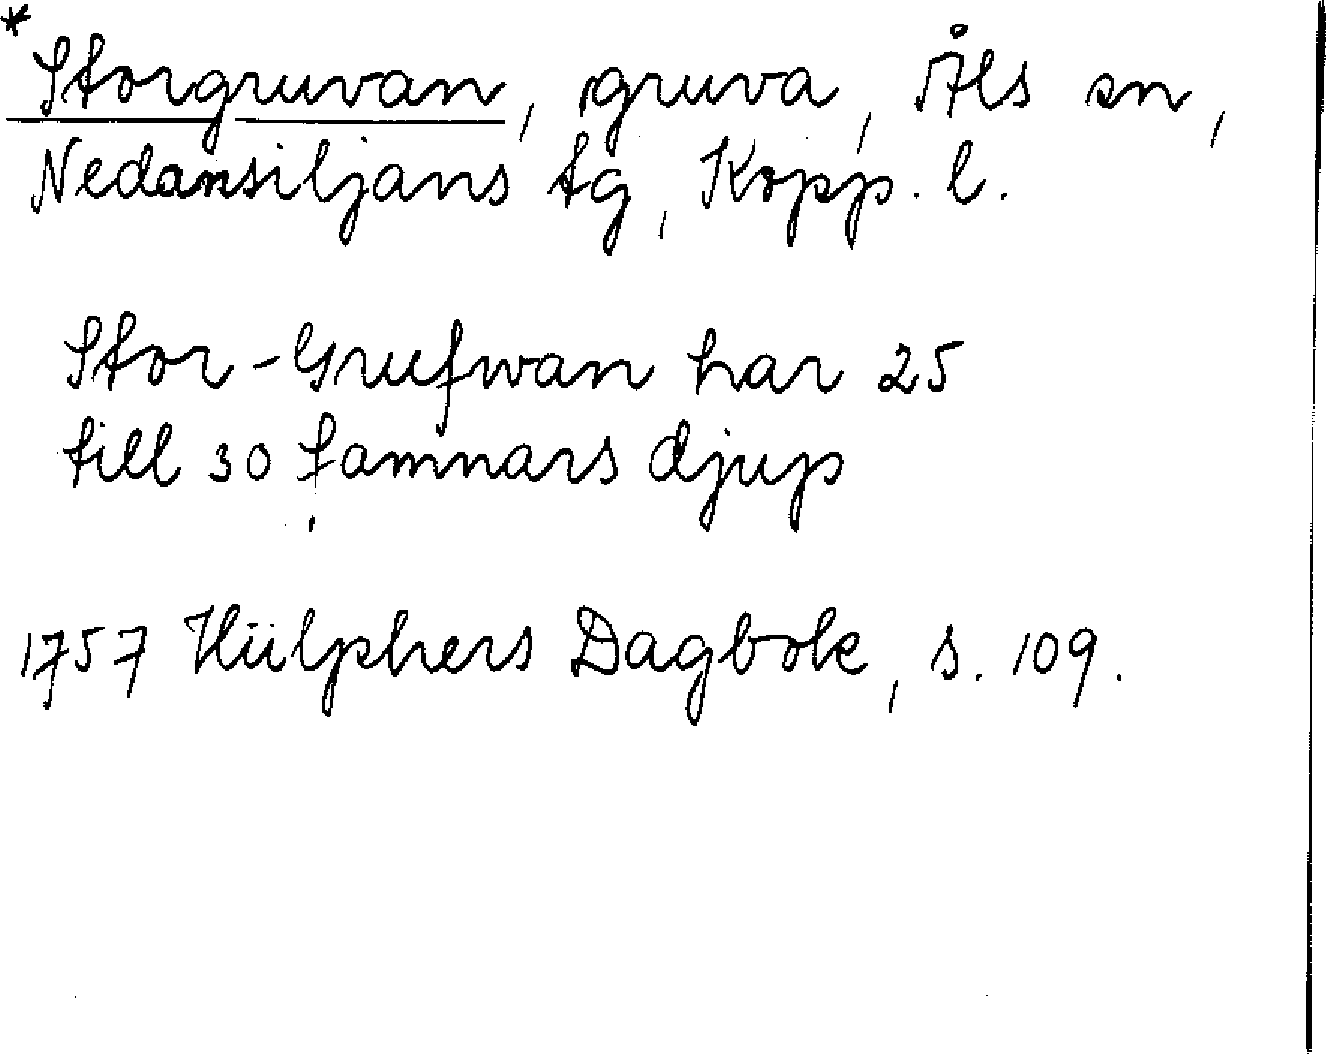 *
Storgruvan, gruva, Åls sn,
Nedansiljans tg, Kopp. l.
Stor-Grufwan har 25
till 30 famnars djup
1757 Hülphers Dagbok, s. 109.